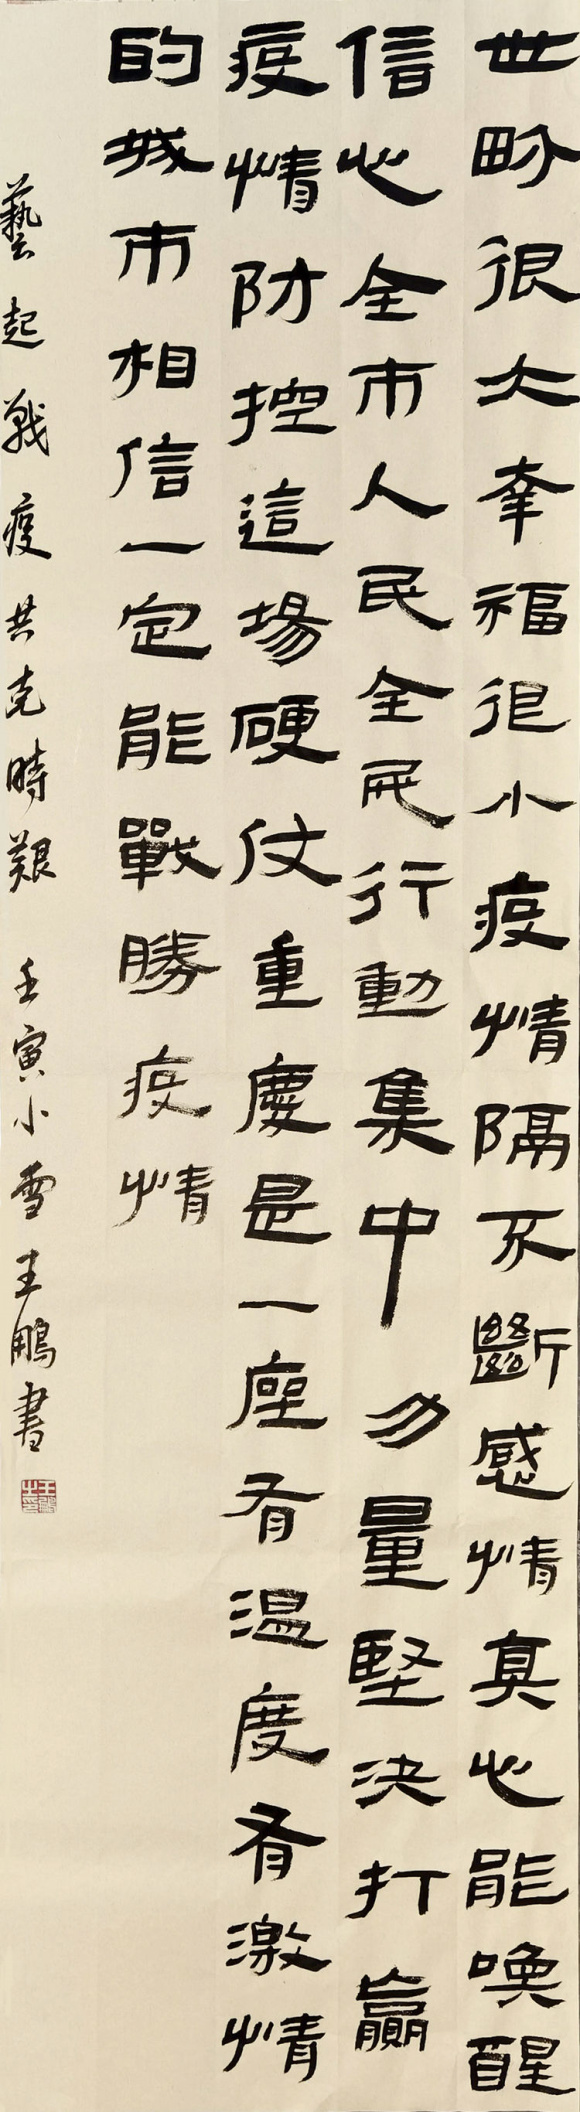 世界很大幸福很小疫情隔不斷感情真心能喚醒
信心全市人民全民行動集中力量堅決打贏
疫情防控這場硬仗重慶是一座有温度有激情
的城市相信一定能戰勝疫情
藝起戰疫共克時艱 壬寅小雪王鵬書